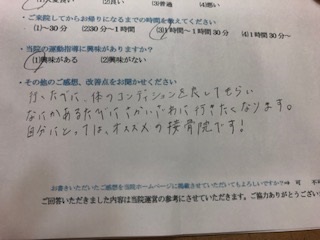 (1)大変良い (2)良い (3)普通 (4)悪い
・ご来院してからお帰りになるまでの時間を教えてください
(1)～30分 (2)30分～1時間 (3)1時間～1時間30分 (4)1時間30分～
・当院の運動指導に興味がありますか?
(1)興味がある (2)興味がない
・その他のご感想、改善点をお聞かせください
行くたびに、体のコンディションを良くしてもらい
なにかあるたびに
行きたくなります。
自分にとっては、オススメの接骨院です!
お書きいただいたご感想を当院ホームページに掲載させていただいてもよろしいですか? → 可
ご回答いただきました内容は当院運営の参考にさせていただきます。ご協力ありがとうござい